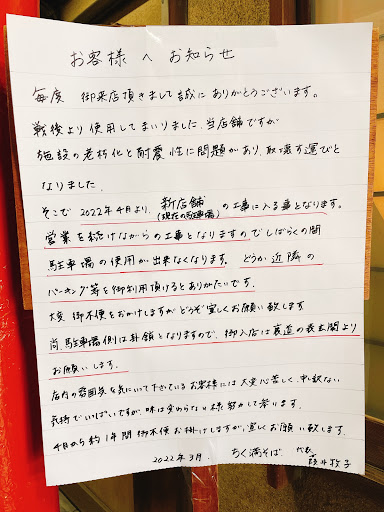 お客様へ お知らせ
毎度 御来店頂きまして誠にありがとうございます。
戦後より使用してまいりました、当店舗ですが
施設の老朽化と耐震性に問題があり、取壊す運びと
なりました。
そこで 2022年4月より、新店舗(現在の駐車場)の工事に入る事となります。
営業を続けながらの工事となりますのでしばらくの間
駐車場の使用が出来なくなります。 どうか近隣の
パーキング等を御利用頂けるとありがたいです。
大変 御不便をおかけしますがどうぞ宜しくお願い致します
尚、駐車場側は封鎖となりますので、御入店は裏道の表玄関より
お願いします。
店内の雰囲気を気にいって下さっているお客様には大変心苦しく、申し訳ない
気持でいっぱいですが、味は変わらない様努力して参ります。
4月から約1年間御不便お掛けしますが、宜しくお願い致します。
2022年3月. ちく満そば. 代表